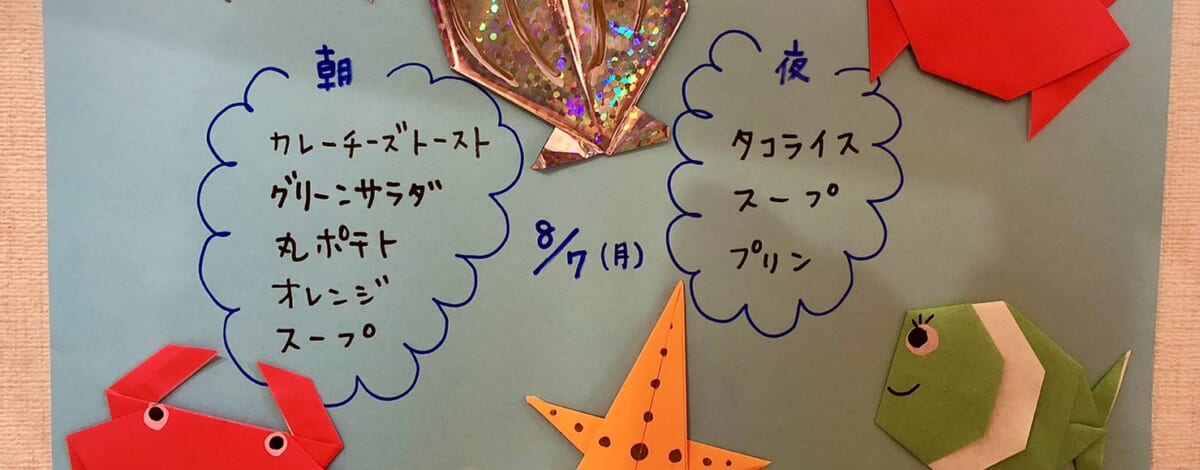 朝
カレーチーズトースト
グリーンサラダ
丸ポテト
オレンジ
スープ
8/7(月)
夜
タコライス
スープ
プリン